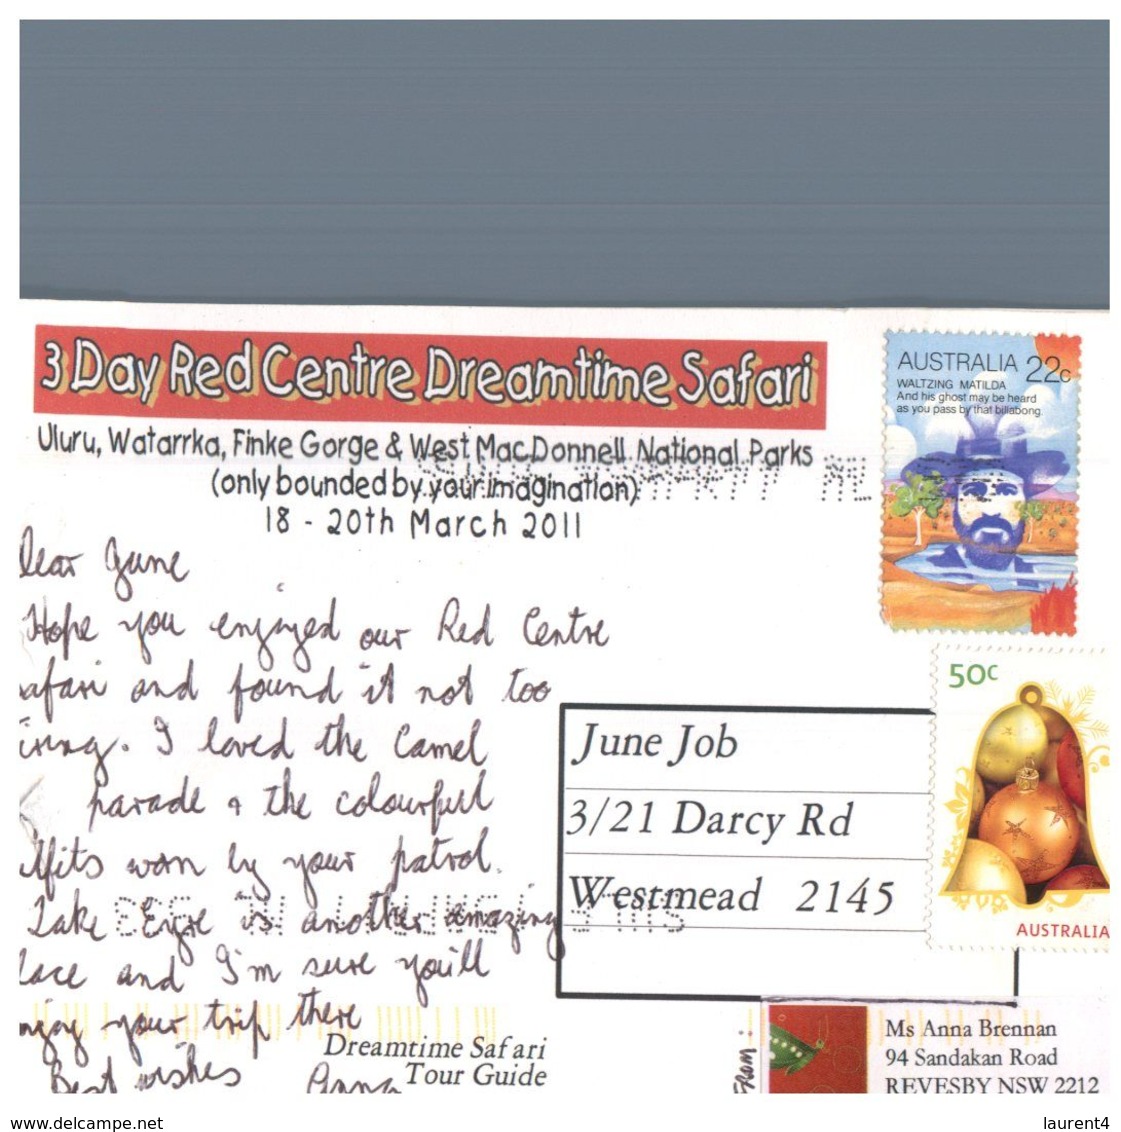 3 Day Red Centre Dreamtime Safari
Uluru, Watarrka, Finke Gorge & West MacDonnell National Parks
(only bounded by your imagination)
18 - 20th March 2011
AUSTRALIA 22c
WALTZING MATILDA
And his ghost may be heard
as you pass by that billabong.
50c
AUSTRALIA
Dear June
Hope you enjoyed our Red Centre
afari and found it not too
iring. I loved the Camel
parade & the colourful
utfits worn by your patrol.
Lake Eyre is another amazing
lace and I'm sure you'll
njoy your trip there
Best wishes Anna
Dreamtime Safari
Tour Guide
June Job
3/21 Darcy Rd
Westmead 2145
From:
Ms Anna Brennan
94 Sandakan Road
REVESBY NSW 2212
www.delcampe.net
laurent4